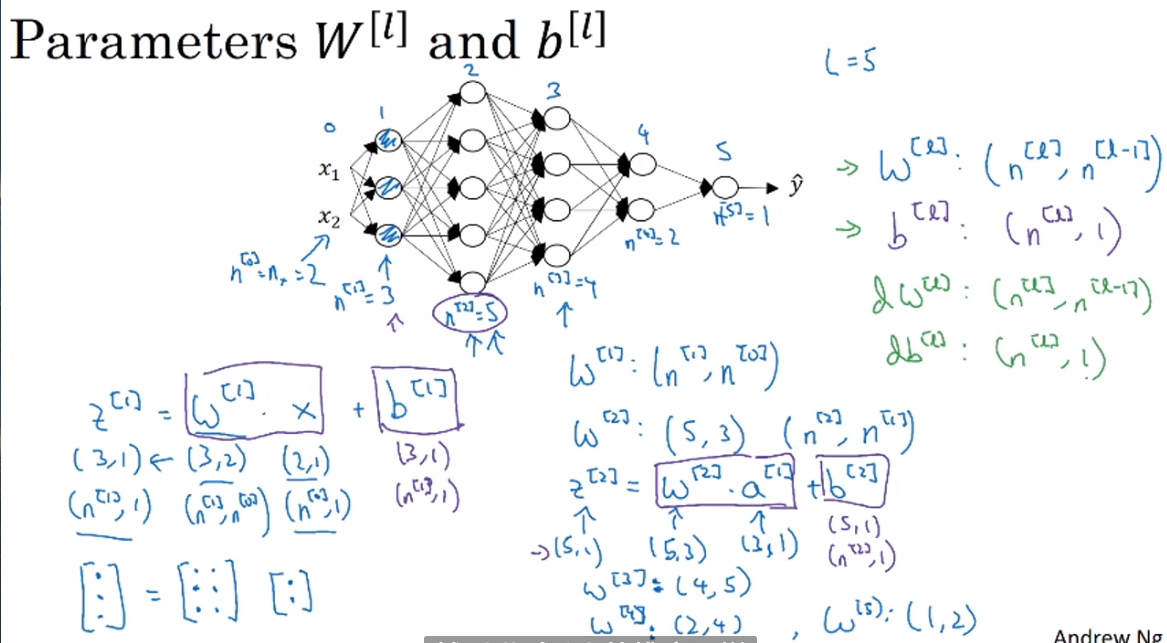 Parameters W^[l] and b^[l]
L = 5
0 1 2 3 4 5
x₁
x₂
ŷ
n^[0] = nₓ = 2
n^[1] = 3
n^[2] = 5
n^[3] = 4
n^[4] = 2
n^[5] = 1
→ W^[l] : (n^[l], n^[l-1])
→ b^[l] : (n^[l], 1)
dW^[l] : (n^[l], n^[l-1])
db^[l] : (n^[l], 1)
z^[1] = W^[1] · x + b^[1]
(3,1) ← (3,2) (2,1) (3,1)
(n^[1], 1) (n^[1], n^[0]) (n^[0], 1) (n^[1], 1)
[⋮] = [⋮ ⋮] [:]
W^[1] : (n^[1], n^[0])
W^[2] : (5, 3) (n^[2], n^[1])
z^[2] = W^[2] · a^[1] + b^[2]
→ (5,1) (5,3) (3,1) (5,1)
(n^[2], 1)
W^[3] : (4, 5)
W^[4] : (2, 4) , W^[5] : (1, 2)
Andrew Ng